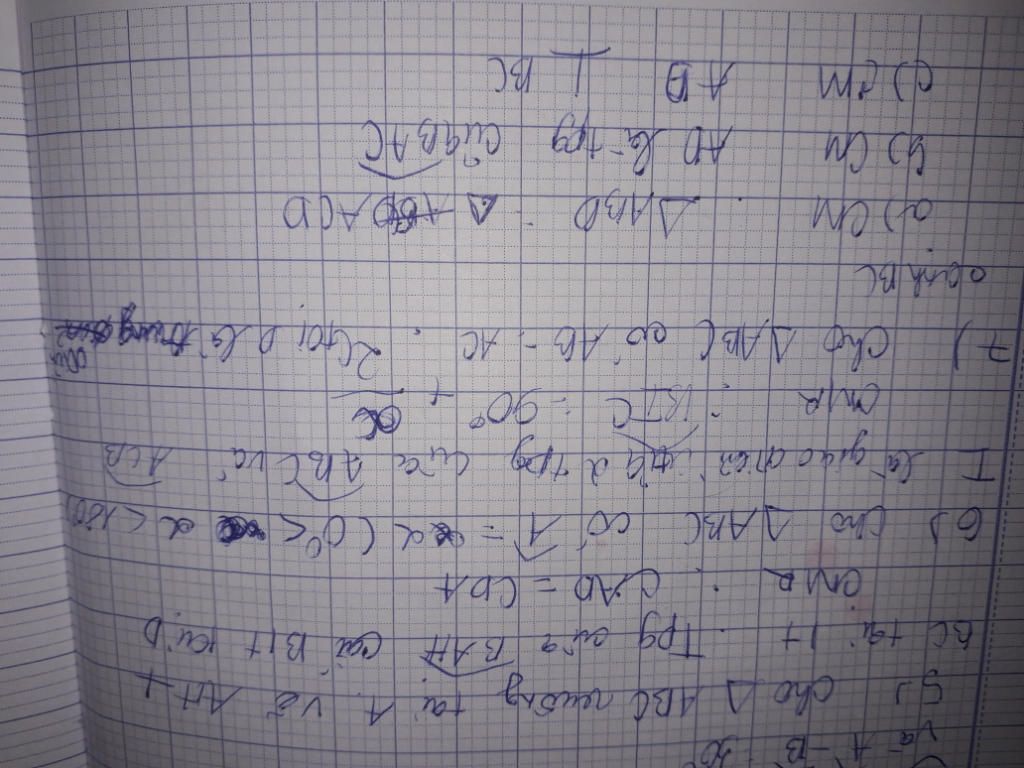 và A - B = 30°
5) Cho Δ ABC vuông tại A. Vẽ AH ⊥
BC tại H. Tpg của BAH cắt BH tại D
CMR : CAD = CDA
6) Cho Δ ABC có A = α (0° < α < 180°)
I là giao điểm của 2 tpg của ABC và ACB
CMR : BIC = 90° + α/2
7) Cho Δ ABC có AB = AC. Gọi D là trung điểm
cạnh BC
a) CM : Δ ABD = Δ ACD
b) CM AD là tpg của BAC
c) CM AD ⊥ BC